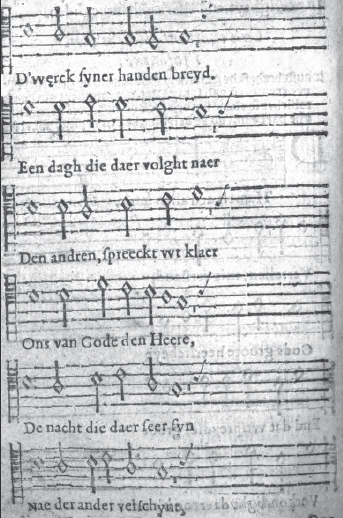 D'węrck ſyner handen breyd.
Een dagh die daer volght naer
Den andren, ſpreeckt wt klaer
Ons van Gode den Heere,
De nacht die daer ſeer ſyn
Nae der ander verſchynt,